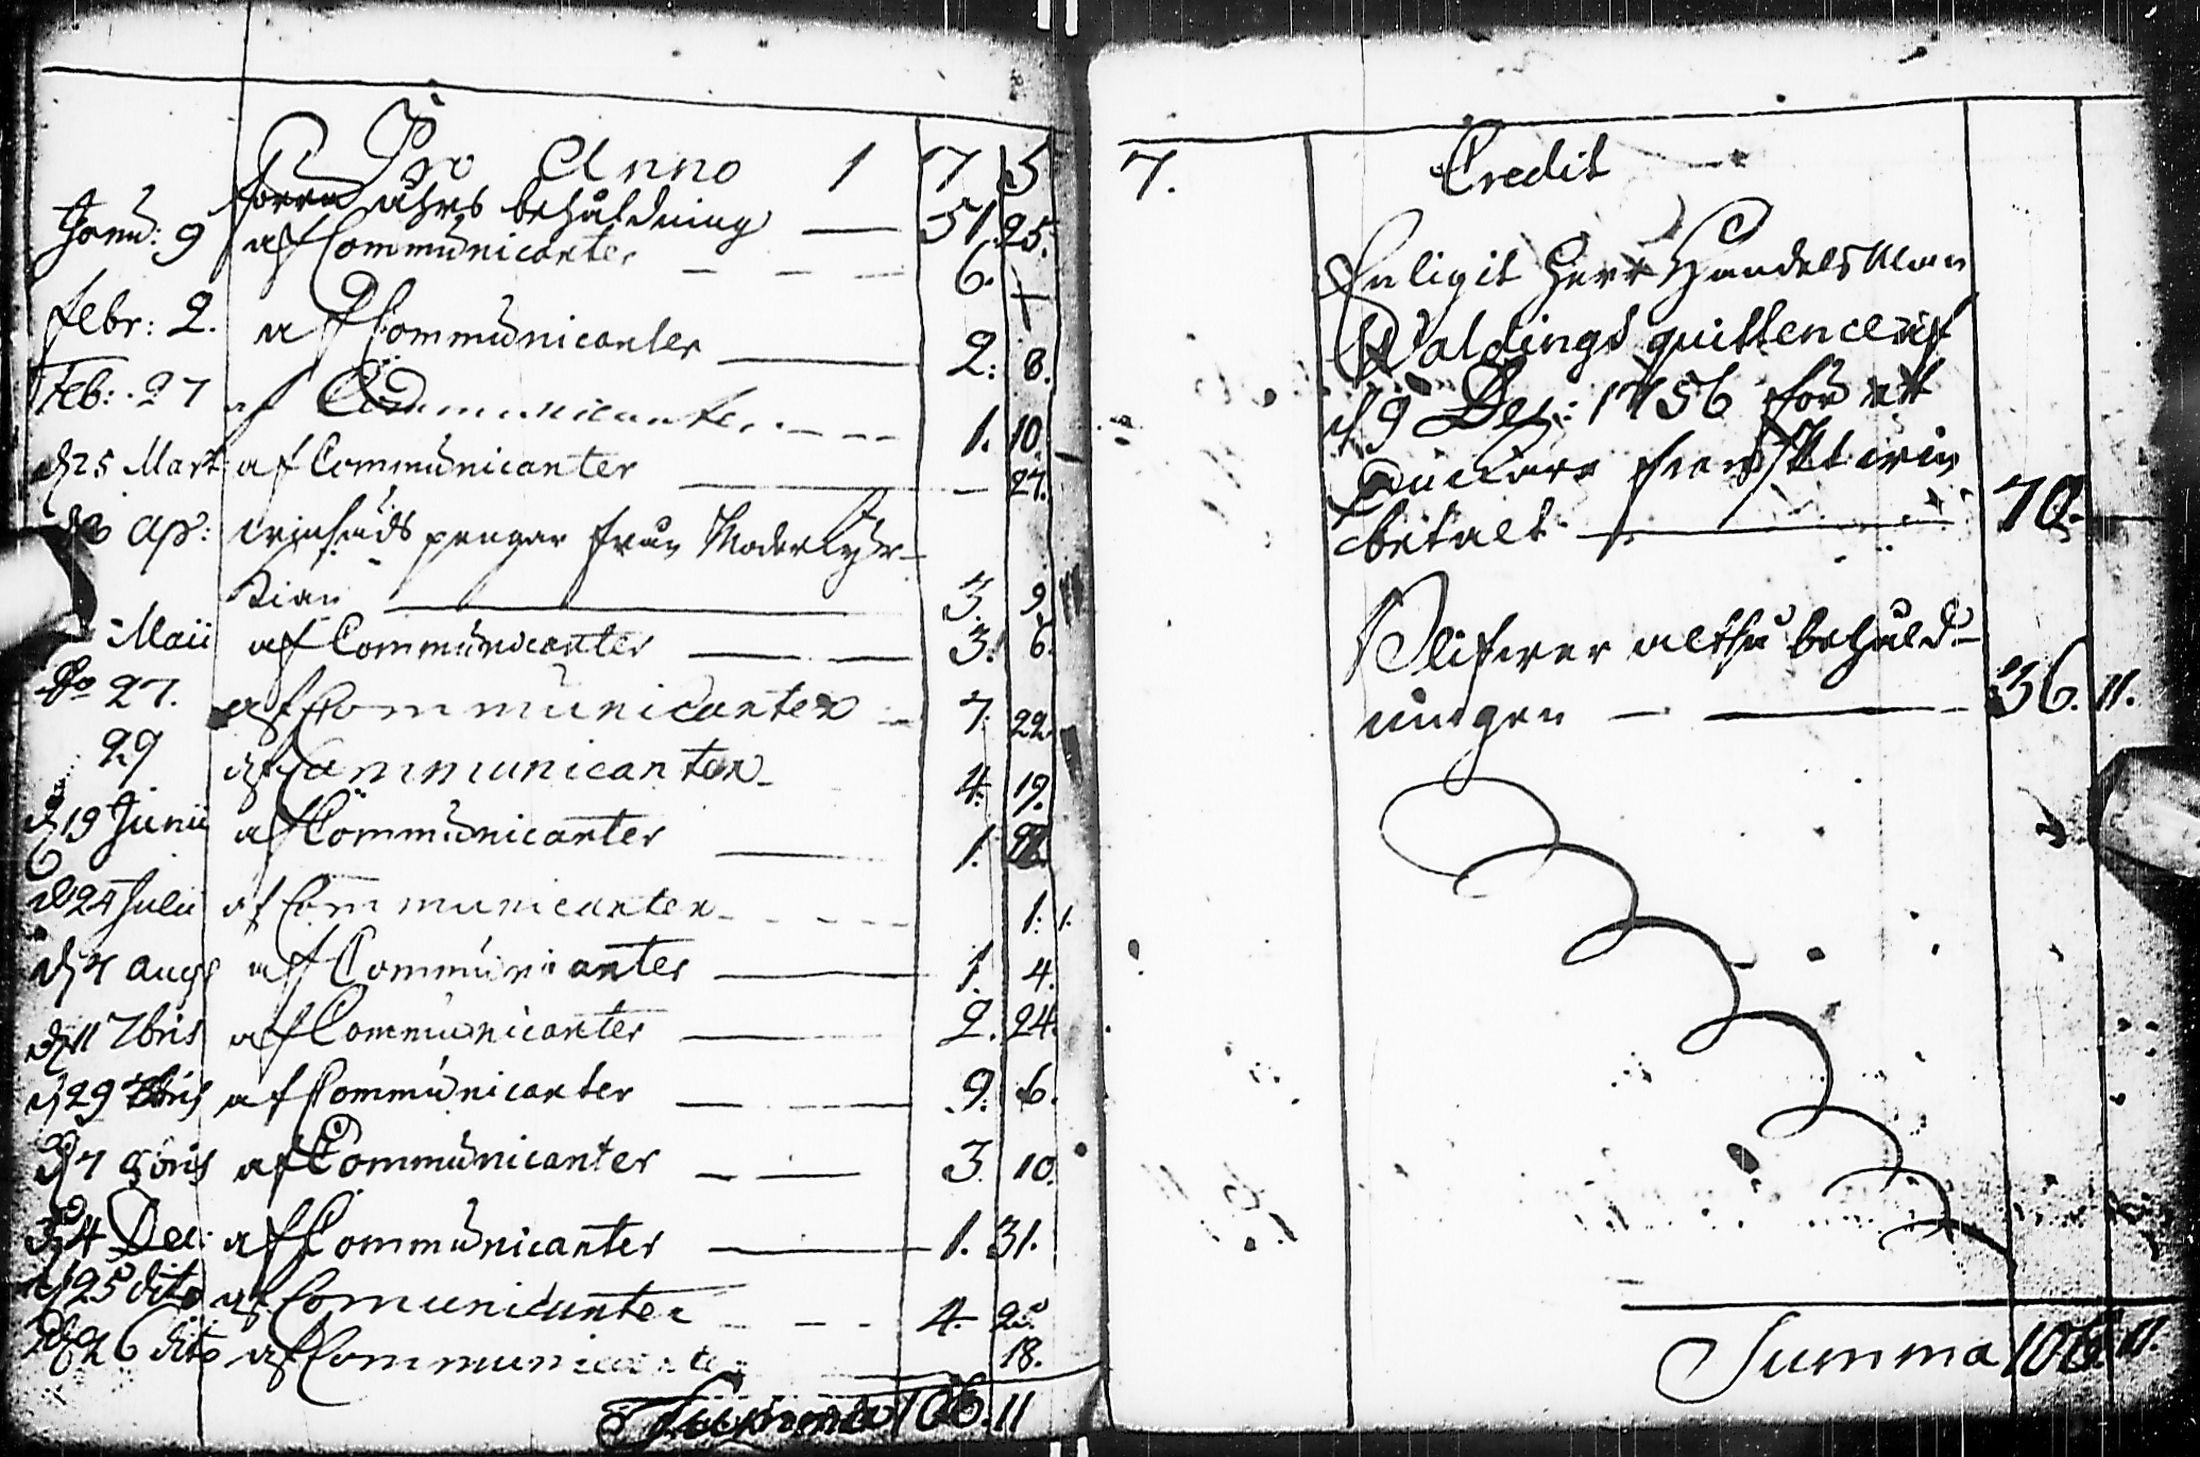 Pro Anno 1 7 5
förra åhrs behåldning — 51. 25.
Janu: 9 af Communicanter — 6. +
Febr: 2. af Communicanter — 2: 8.
Feb: 27 af Communicanter — 1. 10.
d 25 Mart: af Communicanter — 27.
Ap: pengar från Moderkyr-
kian — 3. 9.
Maii af Communicanter — 3. 6.
do 27. af Communicanter — 7. 22
29 af Communicanter 4. 19.
d 19 Junii af Communicanter — 1.
d 24 Julii af Communicanter 1. 1.
d 7 aug: af Communicanter — 1. 4.
d 11 7bris af Communicanter — 2. 24.
d 29 7bris af Communicanter — 9. 6.
d 7 9bris af Communicanter — 3. 10.
d 4 Dec: af Communicanter — 1. 31.
d 25 dito af Comunicanter — 4. 2.
d 26 dito af Communicanter 18.
Summa 106. 11
7. Credit
Enligit Herr Handelsman
Woldings quittence af
d 9 Dec: 1756 för ett

betalt — 70.
Blifwer altså behåld-
ningen — 36. 11.
Summa 106 11.